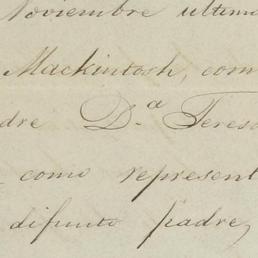 Noviembre ultim
Mackintosh, com
dre D.ª Teres
como represent
difunto padre,